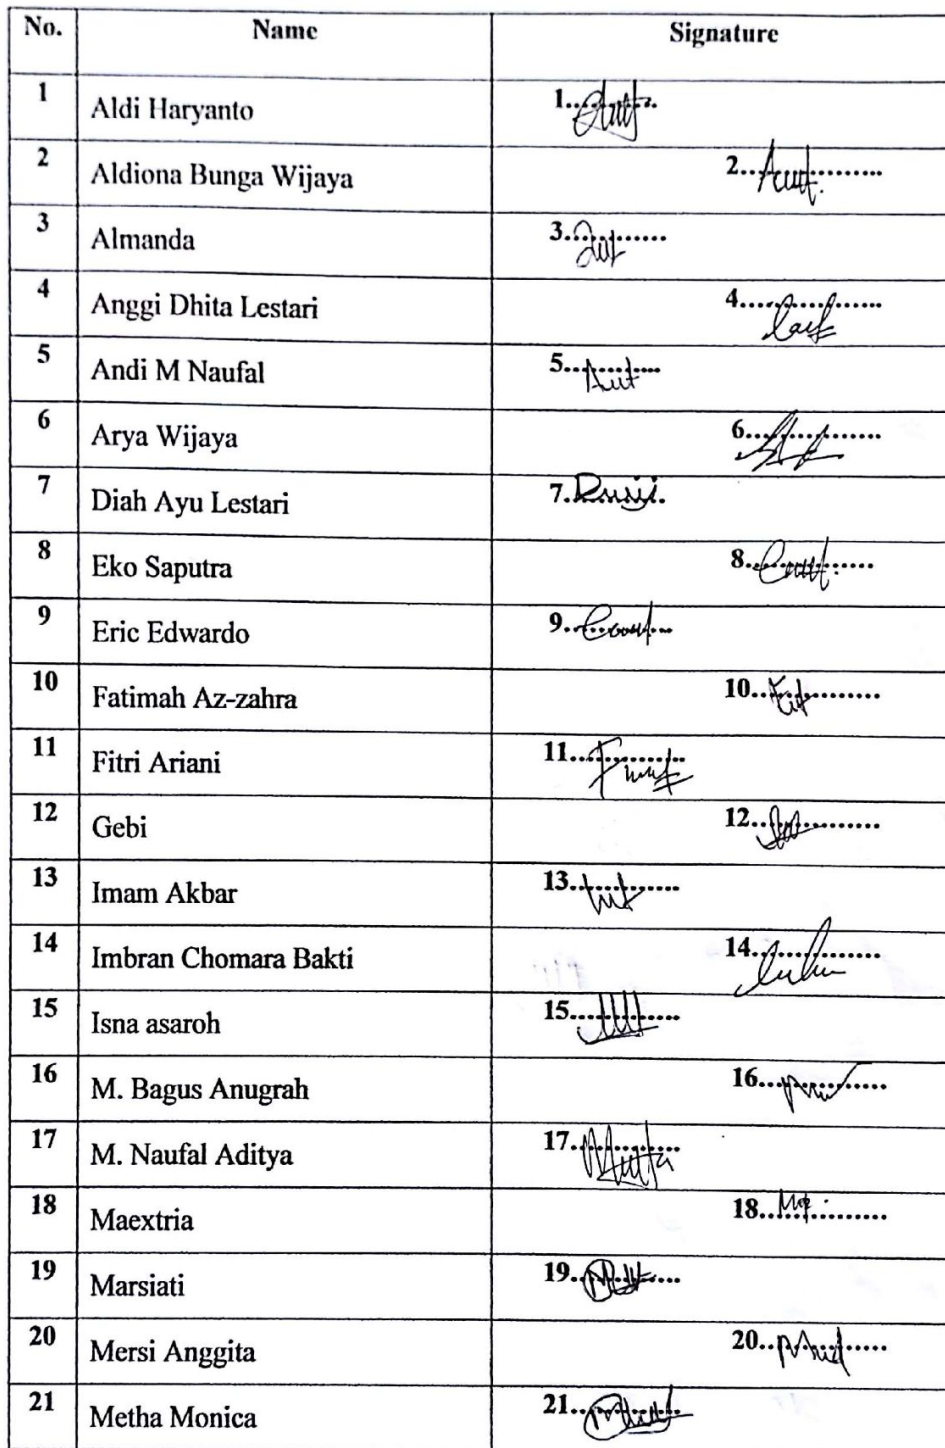 No. Name Signature
1 Aldi Haryanto 1..........
2 Aldiona Bunga Wijaya 2..............
3 Almanda 3..........
4 Anggi Dhita Lestari 4..............
5 Andi M Naufal 5..........
6 Arya Wijaya 6..............
7 Diah Ayu Lestari 7..........
8 Eko Saputra 8..............
9 Eric Edwardo 9..........
10 Fatimah Az-zahra 10..............
11 Fitri Ariani 11..........
12 Gebi 12..............
13 Imam Akbar 13..........
14 Imbran Chomara Bakti 14..............
15 Isna asaroh 15..........
16 M. Bagus Anugrah 16..............
17 M. Naufal Aditya 17..........
18 Maextria 18..............
19 Marsiati 19..........
20 Mersi Anggita 20..............
21 Metha Monica 21..........